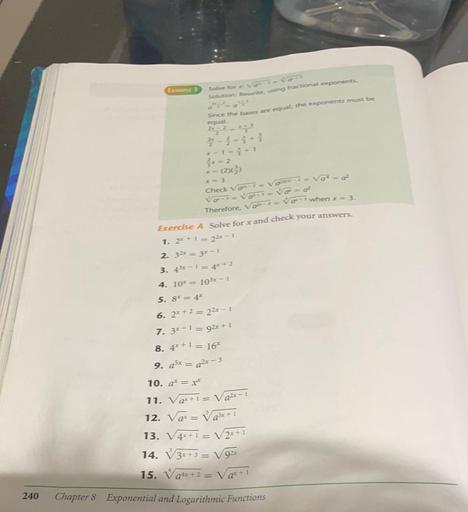 Example 3 Solve for x:
Solution: Rewrite, using fractional exponents.
Since the bases are equal, the exponents must be
equal.
x = (2)(3/2)
x = 3
Check
Therefore, when x = 3.
Exercise A Solve for x and check your answers.
1. 2ˣ ⁺ ¹ = 2²ˣ ⁻ ¹
2. 3²ˣ = 3ˣ ⁻ ¹
3. 4³ˣ ⁻ ¹ = 4ˣ ⁺ ²
4. 10ˣ = 10³ˣ ⁻ ¹
5. 8ˣ = 4ˣ
6. 2ˣ ⁺ ² = 2²ˣ ⁻ ¹
7. 3ˣ ⁻ ¹ = 9²ˣ ⁺ ¹
8. 4ˣ ⁺ ¹ = 16ˣ
9. a⁵ˣ = a²ˣ ⁻ ³
10. aˣ = xˣ
11. √aˣ ⁺ ¹ = √a²ˣ ⁻ ¹
12. √aˣ = ³√a³ˣ ⁺ ¹
13. √4ˣ ⁺ ¹ = √2ˣ ⁺ ¹
14. ³√3ˣ ⁺ ³ = √9²ˣ
15. √a⁴ˣ ⁺ ² = √aˣ ⁺ ¹
240 Chapter 8 Exponential and Logarithmic Functions